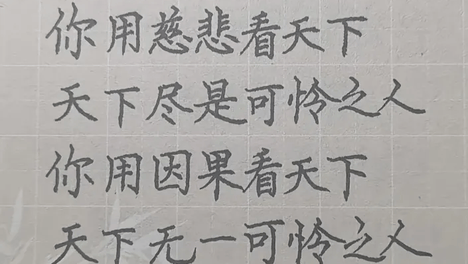 你用慈悲看天下
天下尽是可怜之人
你用因果看天下
天下无一可怜之人